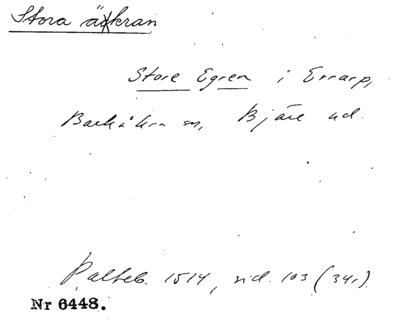 Stora äkran
Store Egren i Errarp,
Barkåkra sn, Bjäre hd.
Palteb. 1514, sid. 103 (34r).
Nr 6448.